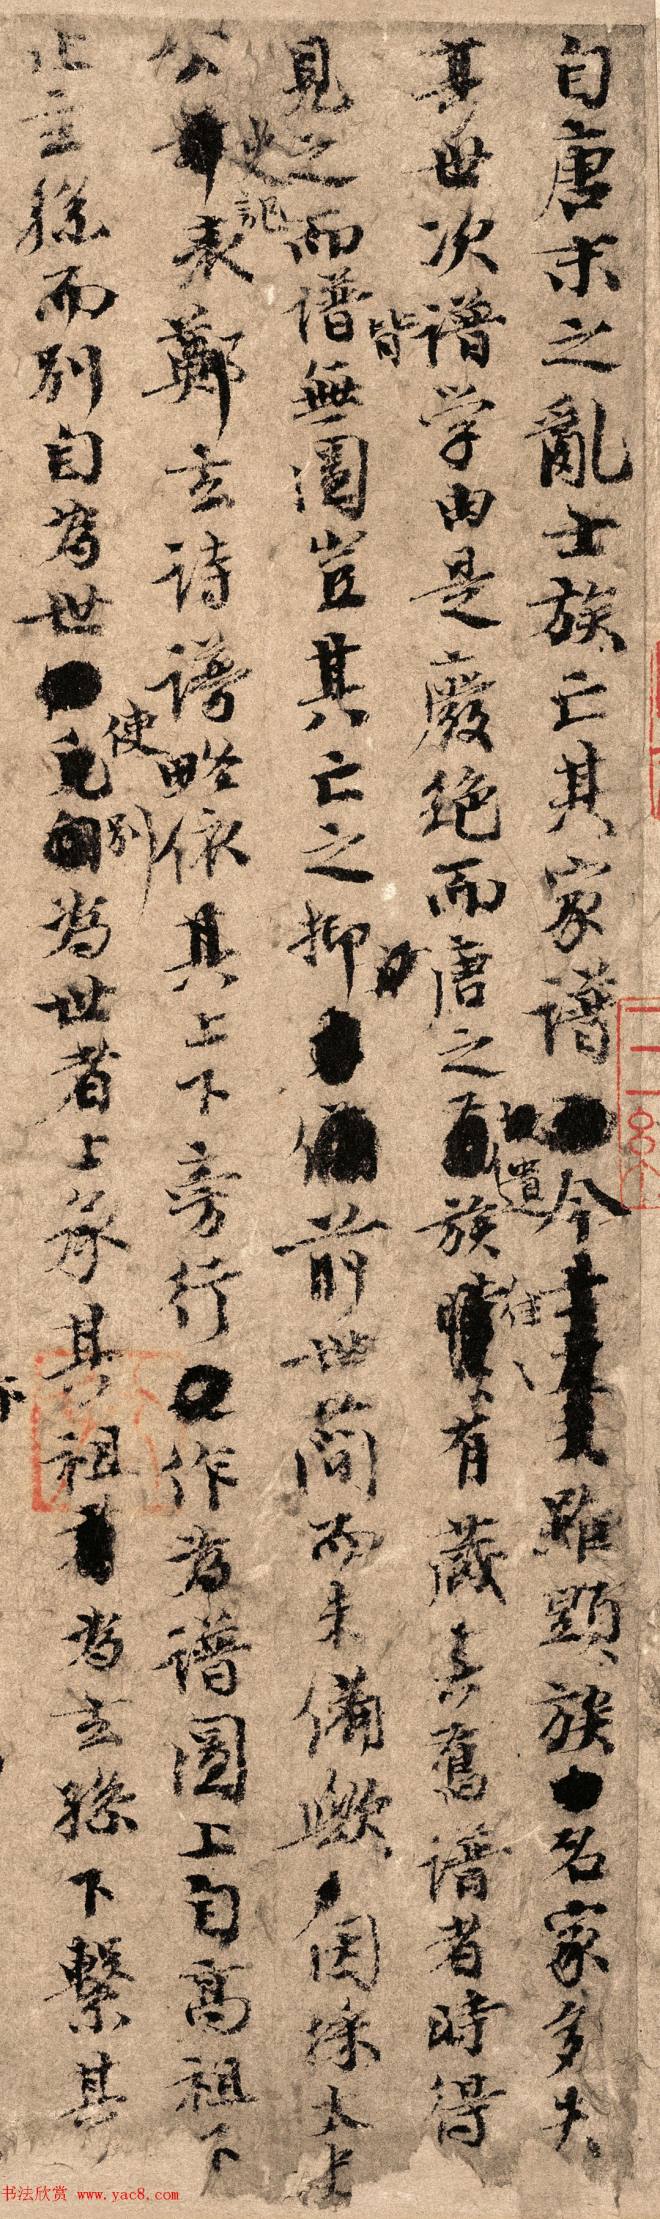 自唐末之亂士族亡其家譜今雖顯族名家多失
其世次譜学由是廢絶而唐之遺族往〻有藏其舊譜者時得
見之而譜皆無圖豈其亡之抑前世簡而未備歟因採太史
公史記表鄭玄詩譜略依其上下旁行作為譜圖上自高祖下
止玄孫而別自為世使別為世者上承其祖為玄孫下繫其
书法欣赏 www.yac8.com